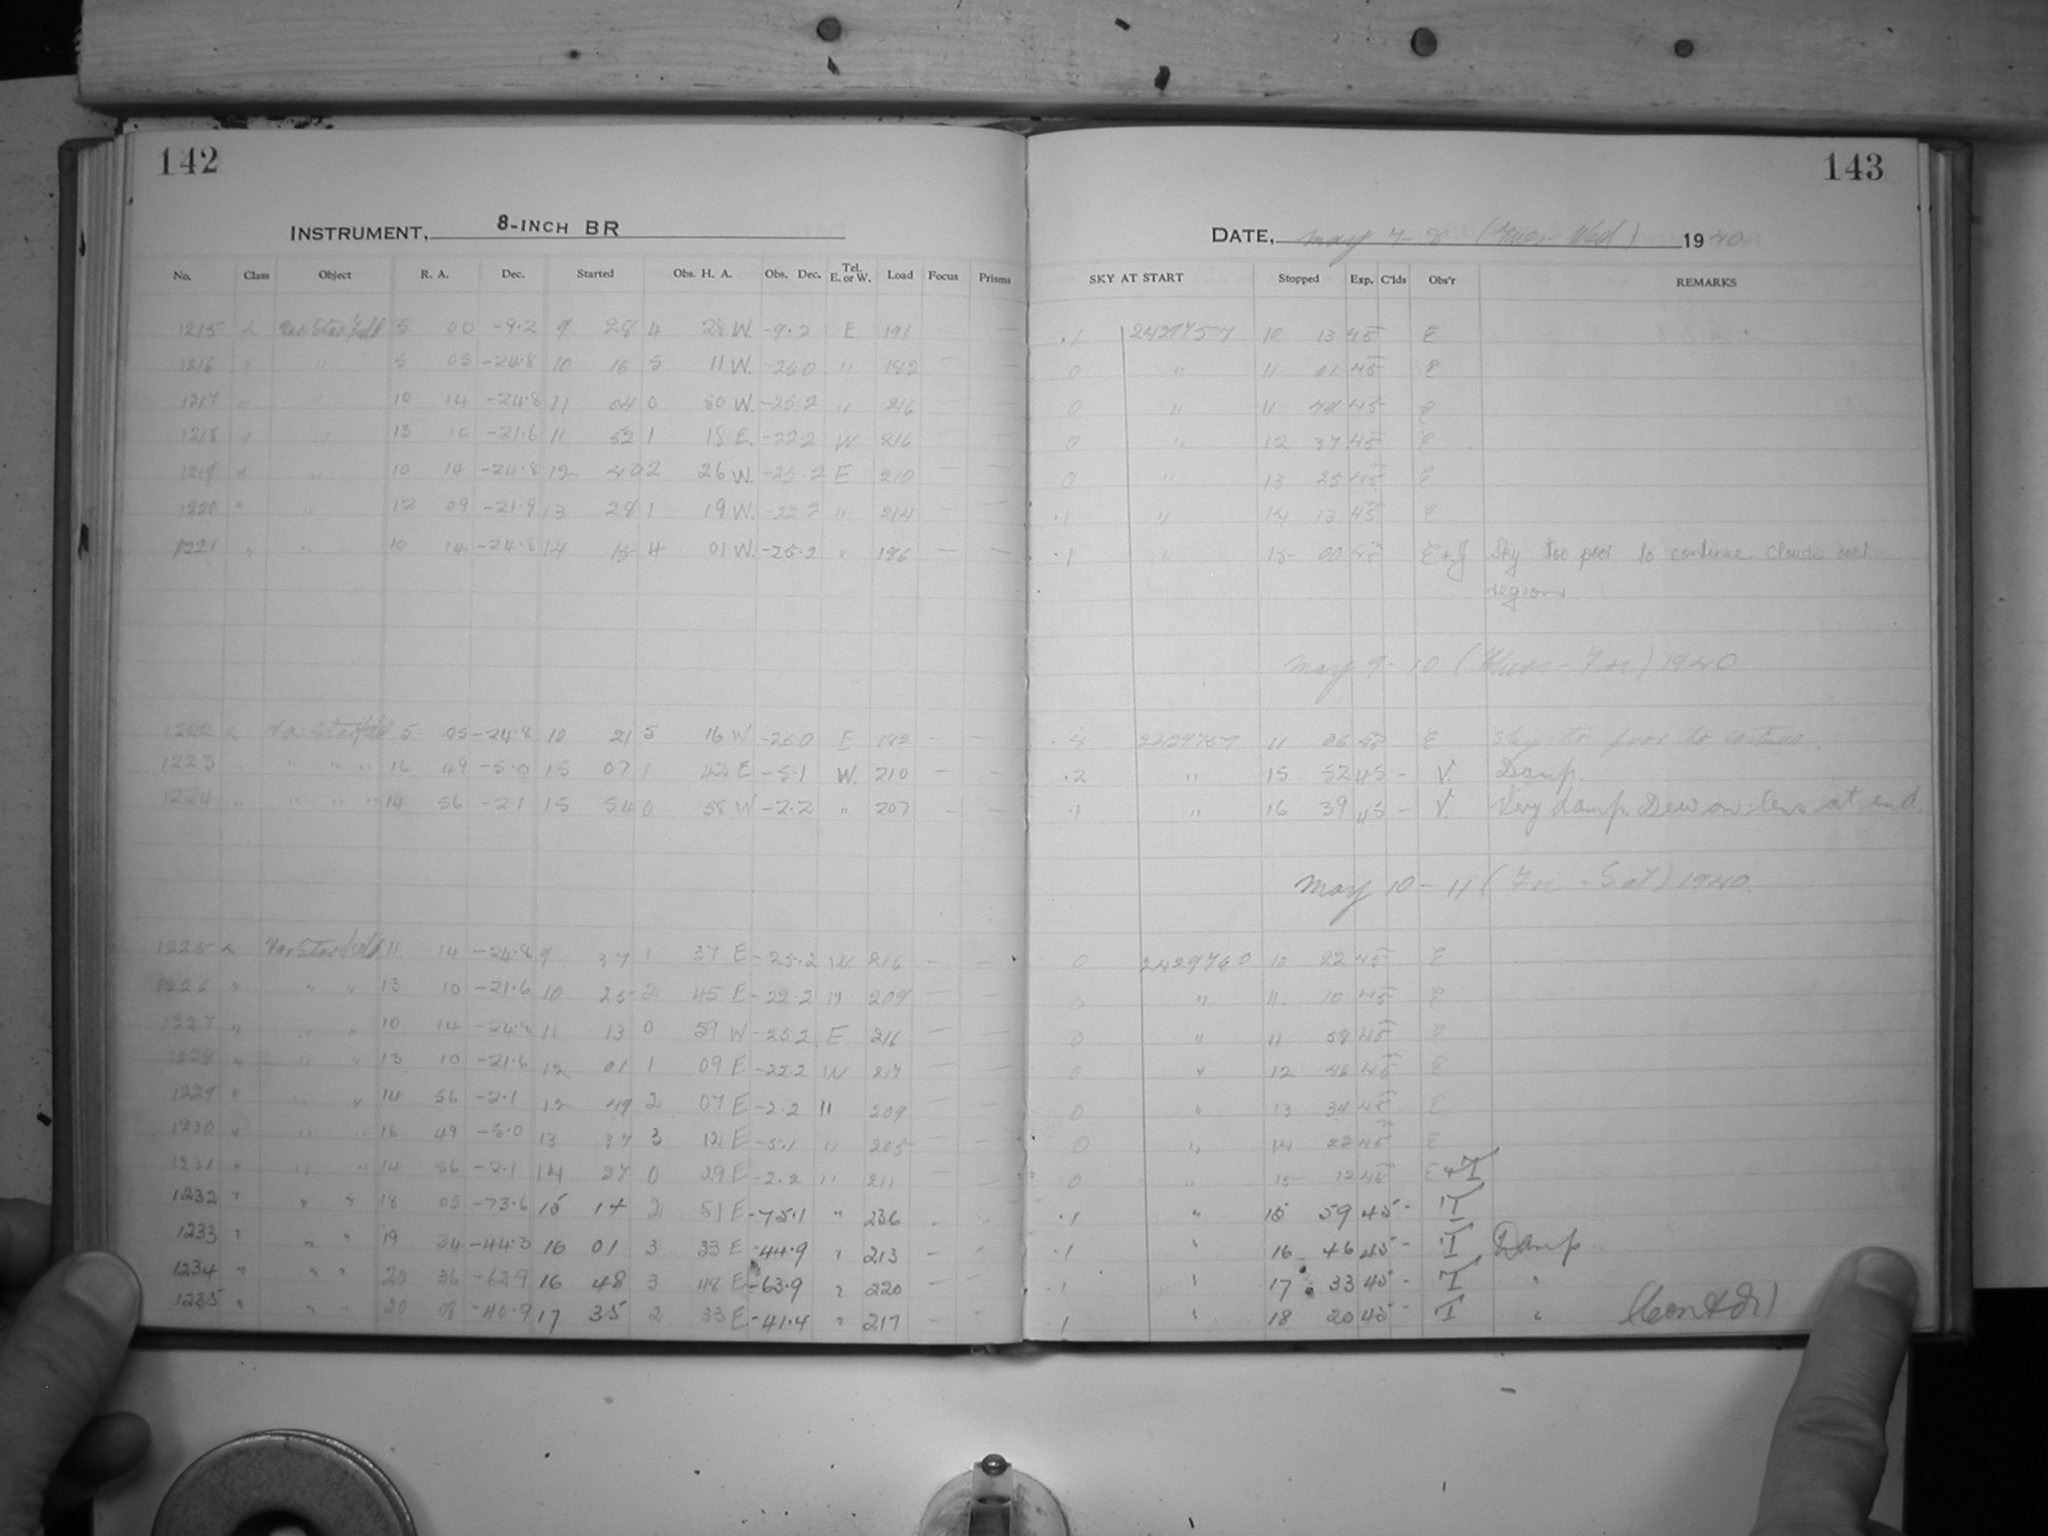 142
INSTRUMENT, 8-INCH BR
No. Class Object R. A. Dec. Started Obs. H. A. Obs. Dec. Tel. E. or W. Load Focus Prisms
1215 L Var Star Field 5 00 -9.2 9 28 4 28 W. -9.2 E 191 —
1216 " " 5 05 -24.8 10 16 5 11 W. -26.0 " 182 —
1217 " " 10 14 -24.8 11 04 0 50 W. -25.2 " 216 — —
1218 " " 13 10 -21.6 11 52 1 18 E. -22.2 W 216 — —
1219 " " 10 14 -24.8 12 40 2 26 W. -25.2 E 210 — —
1220 " " 12 09 -21.9 13 28 1 19 W. -22.2 " 214 — —
1221 " " 10 14 -24.8 14 15 4 01 W. -25.2 " 196 — —
1222 L Var Star Field 5 05 -24.8 10 21 5 16 W -26.0 E 182 — —
1223 " " " " 16 49 -5.0 15 07 1 42 E -5.1 W. 210 — —
1224 " " " " 14 56 -2.1 15 54 0 58 W -2.2 " 207 — —
1225 L Var Star Field 11 14 -24.8 9 37 1 37 E -25.2 W 216 — —
1226 " " " 13 10 -21.6 10 25 2 45 E -22.2 " 209 — —
1227 " " " 10 14 -24.8 11 13 0 59 W -25.2 E 216 — —
1228 " " " 13 10 -21.6 12 01 1 09 E -22.2 W 217 — —
1229 " " " 14 56 -2.1 12 49 2 07 E -2.2 " 209 — —
1230 " " " 16 49 -5.0 13 37 3 12 E -5.1 " 205 — —
1231 " " " 14 56 -2.1 14 27 0 29 E -2.2 " 211 — —
1232 " " " 18 05 -73.6 15 14 2 51 E -75.1 " 236 - -
1233 " " " 19 34 -44.3 16 01 3 33 E -44.9 " 213 — —
1234 " " " 20 36 -62.9 16 48 3 48 E -63.9 " 220 — —
1235 " " " 20 08 -40.9 17 35 2 33 E -41.4 " 217 — —
143
DATE, May 7-8 (Tues-Wed) 1940
SKY AT START Stopped Exp. C'lds Obs'r REMARKS
.1 2429757 10 13 45 E
0 " 11 01 45 E
0 " 11 49 45 E
0 " 12 37 45 E
0 " 13 25 45 E
.1 " 14 13 45 E
.1 " 15 00 45 E+J Sky too poor to continue clouds over
region
May 9-10 (Thurs-Fri) 1940
.4 2429759 11 06 45 E Sky to poor to continue.
.2 " 15 52 45 - V. Damp.
.1 " 16 39 45 - V. Very damp. Dew on lens at end.
May 10-11 (Fri-Sat) 1940
0 2429760 10 22 45 E
0 " 11 10 45 E
0 " 11 58 45 E
0 " 12 46 45 E
0 " 13 34 45 E
0 " 14 22 45 E
0 " 15 12 45 E+T
.1 " 15 59 45 - T
.1 " 16 46 45 - T Damp
.1 " 17 33 45 - T "
.1 " 18 20 45 - T " (Cont'd)